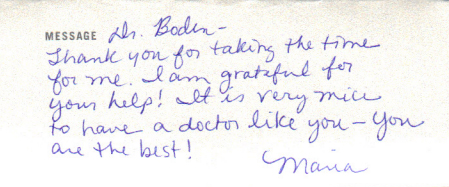 MESSAGE Dr. Boden–
Thank you for taking the time
for me. I am grateful for
your help! It is very nice
to have a doctor like you – You
are the best!
Maria